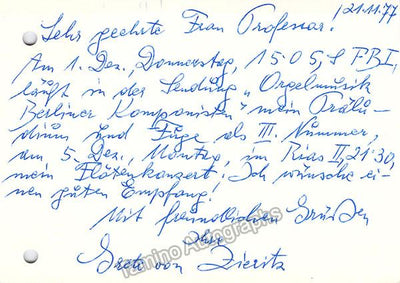 21.11.77
Sehr geehrte Frau Professor!
Am 1. Dez., Donnerstag, 15.05, SFBI,
läuft in der Sendung „Orgelmusik
Berliner Komponisten" mein Prälu-
dium und Fuge als III. Nummer,
am 5. Dez., Montag, im Rias II, 21.30,
mein Flötenkonzert. Ich wünsche ei-
nen guten Empfang!
Mit freundlichen Grüßen
Ihre
Grete von Zieritz
Tamino Autographs